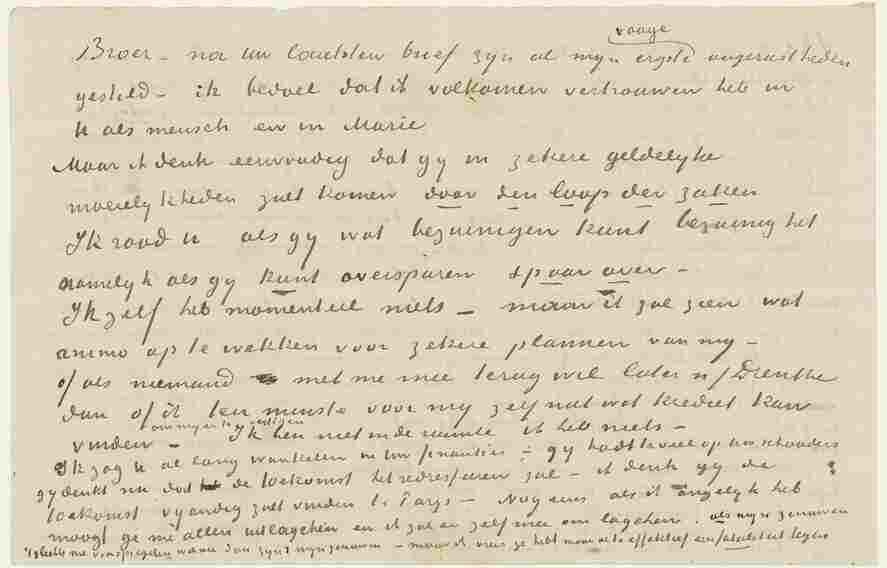 vage
Broer – na uw laatsten brief zyn al myn ergste ongerustheden
gestild – ik bedoel dat ik volkomen vertrouwen heb in
u als mensch en in Marie
Maar ik denk eenvoudig dat gy in zekere geldelyke
moeielykheden zult komen door den loop der zaken
Ik raad u als gy wat bezuinigen kunt bezuinig het
namelyk als gy kunt oversparen spaar over –
Ik zelf heb momenteel niets – maar ik zal zien wat
animo op te wekken voor zekere plannen van my –
of als niemand met me mee terug wil later n/Drenthe
dan of ik ten minste voor my zelf niet wat krediet kan
om my er te vestigen
vinden – Ik ben niet in de ruimte ik heb niets –
Ik zag u al lang wankelen in uw finanties – gy hadt te veel op uw schouders
gy denkt nu dat de toekomst het redresseren zal – ik denk gy de
toekomst vyandig zult vinden te Parys – Nog eens als ik ongelyk heb
moogt ge me allen uitlagchen en ik zal er zelf mee om lagchen. als myn zenuwen
me voorspiegelen dan zyn 't myn zenuwen – maar ik vrees ge hebt maar al te effektief een fataliteit tegen